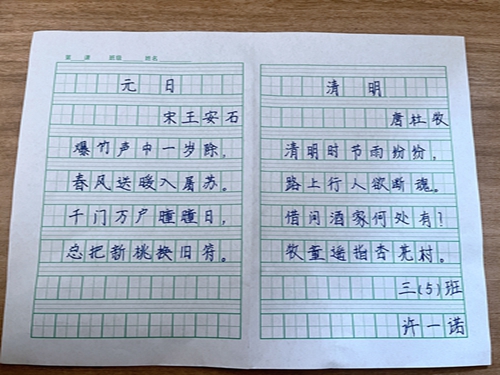 第 课 班级 姓名
元日
宋王安石
爆竹声中一岁除，
春风送暖入屠苏。
千门万户曈曈日，
总把新桃换旧符。
清明
唐杜牧
清明时节雨纷纷，
路上行人欲断魂。
借问酒家何处有？
牧童遥指杏花村。
三（5）班
许一诺